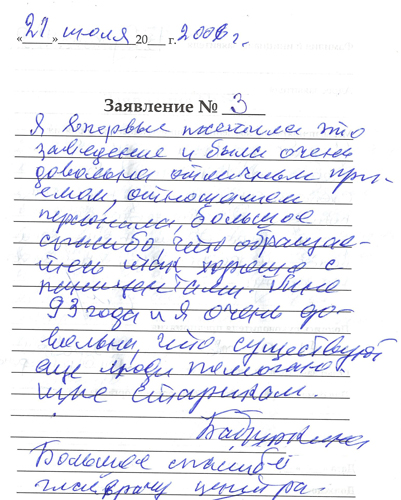 «27» июля 20__ г. 2006 г.
Заявление № 3
Я впервые посетила это
заведение и была очень
довольна отличным при-
емом, отношением
персонала, большое
спасибо, что обращае-
тесь так хорошо с
пациентами. Мне
93 года и я очень до-
вольна, что существуют
еще люди помогаю-
щие старикам.
Большое спасибо
главврачу центра-